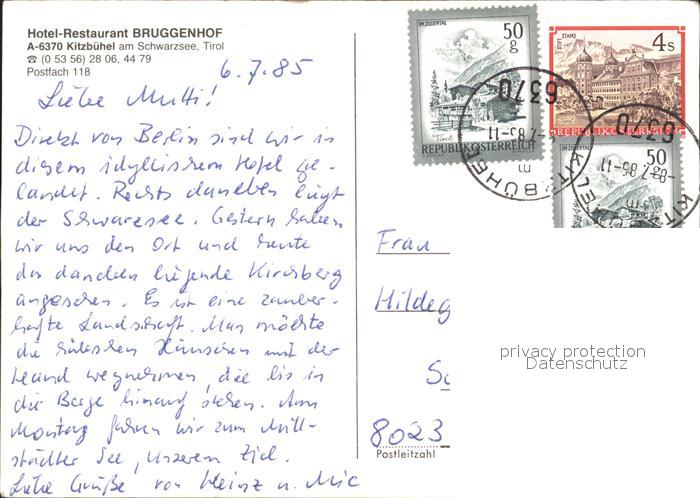 Hotel-Restaurant BRUGGENHOF
A-6370 Kitzbühel am Schwarzsee, Tirol
☎ (0 53 56) 28 06, 44 79
Postfach 118
6.7.85
Liebe Mutti!
Direkt von Berlin sind wir in
diesem idyllischem Hotel ge-
landet. Rechts daneben liegt
der Schwarzsee. Gestern haben
wir uns den Ort und heute
das daneben liegende Kirchberg
angesehen. Es ist eine zauber-
hafte Landschaft. Man möchte
die hübschen Häuschen mit der
Hand wegnehmen, die bis in
die Berge hinauf stehen. Am
Montag fahren wir zum Mill-
städter See, unserem Ziel.
Liebe Grüße von Heinz u. Mic
IM ZILLERTAL
50 g
REPUBLIK ÖSTERREICH
STIFT STAMS
4 S
REPUBLIK ÖSTERREICH
IM ZILLERTAL
50
6370
KITZBÜHEL
6370
-8.7.85-11
KITZBÜHEL
Frau
Hildeg
8023
Postleitzahl
privacy protection
Datenschutz